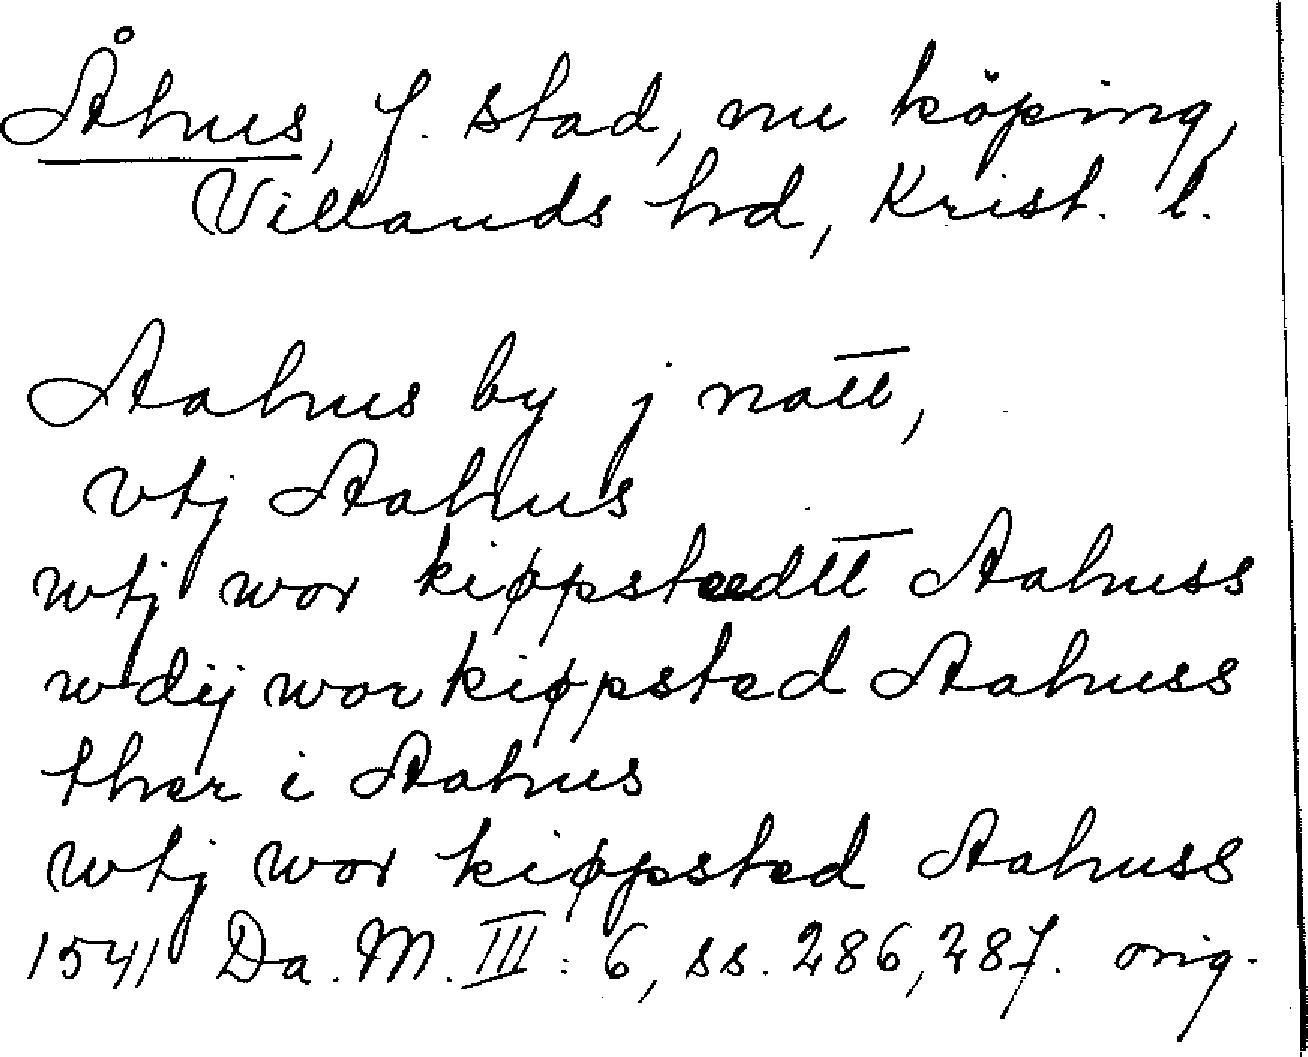 Åhus, f. stad, nu köping,
Villands hd, Krist. l.
Aahus by j natt,
vtj Aahus
wtj wor kiøpstædtt Aahuss
wdij wor kiøpsted Aahuss
ther i Aahus
wtj wor kiøpsted Aahuss
1541 Da. M. III: 6, ss. 286, 287. orig.